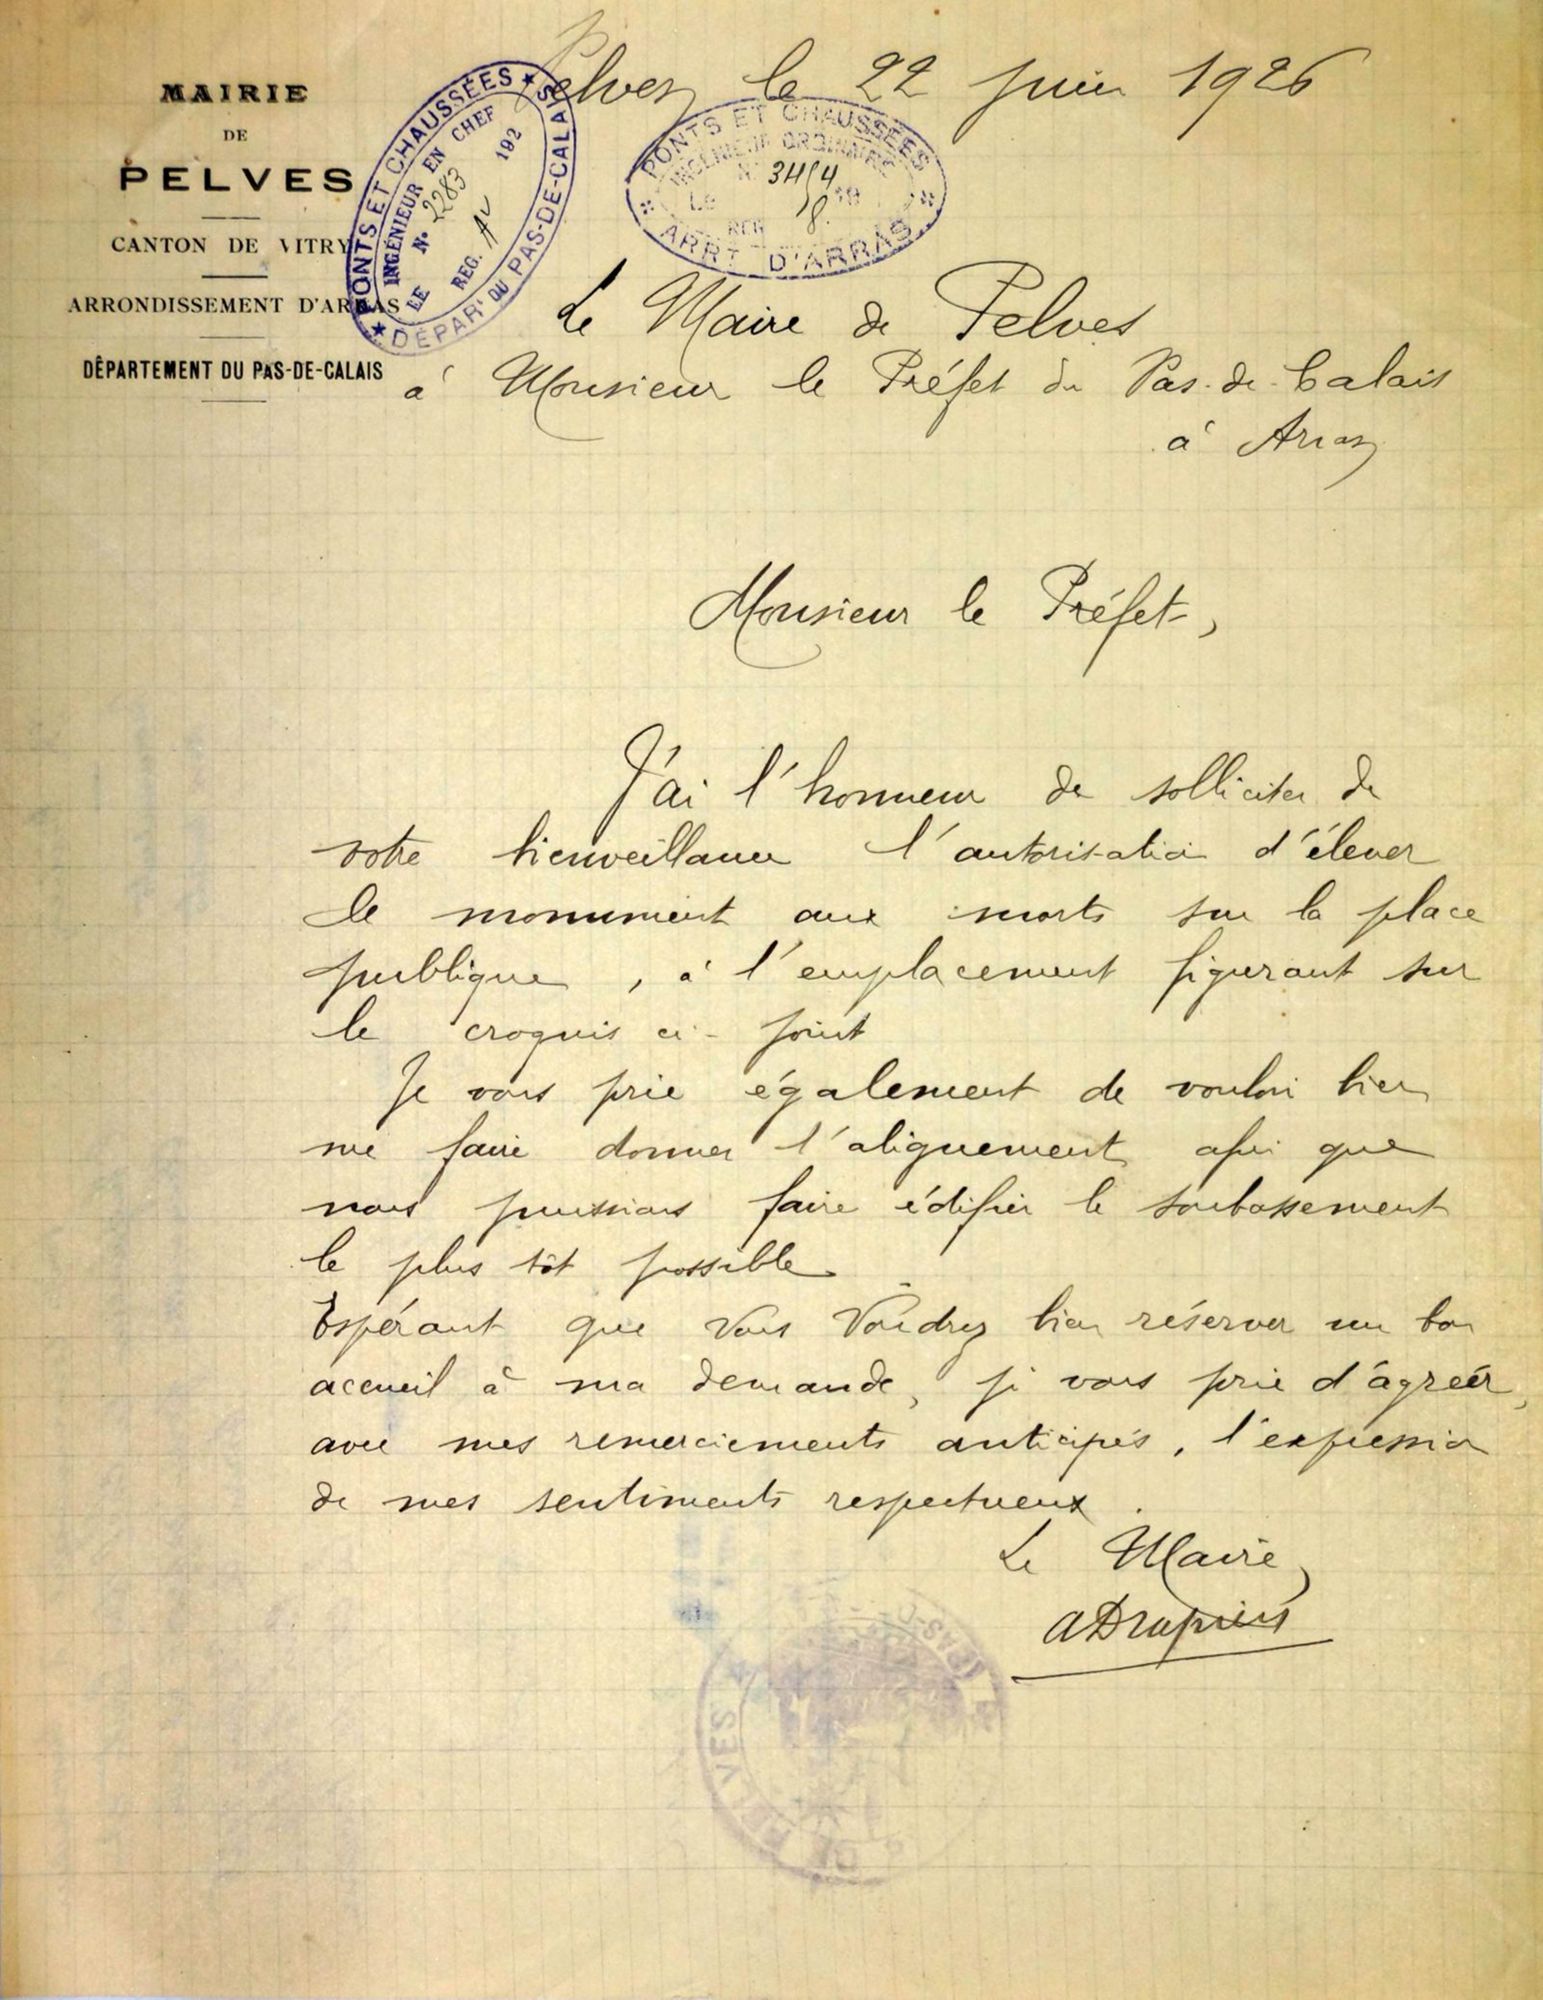 Pelves le 22 juin 1926
MAIRIE
DE
PELVES
CANTON DE VITRY
ARRONDISSEMENT D'ARRAS
DÉPARTEMENT DU PAS-DE-CALAIS
★ PONTS ET CHAUSSÉES ★
DÉPART DU PAS-DE-CALAIS
INGÉNIEUR EN CHEF
LE 192
N° 2283
REG. Av
PONTS ET CHAUSSÉES
INGÉNIEUR ORDINAIRE
N°
LE 19
REG 8.
ARRT D'ARRAS
Le Maire de Pelves
à Monsieur le Préfet du Pas-de-Calais
à Arras
Monsieur le Préfet,
J'ai l'honneur de solliciter de
votre bienveillance l'autorisation d'élever
le monument aux morts sur la place
publique, à l'emplacement figurant sur
le croquis ci-joint
Je vous prie également de vouloir bien
me faire donner l'alignement afin que
nous puissions faire édifier le soubassement
le plus tôt possible
Espérant que vous voudrez bien réserver un bon
accueil à ma demande, je vous prie d'agréer,
avec mes remerciements anticipés, l'expression
de mes sentiments respectueux.
Le Maire,
DE PELVES ★